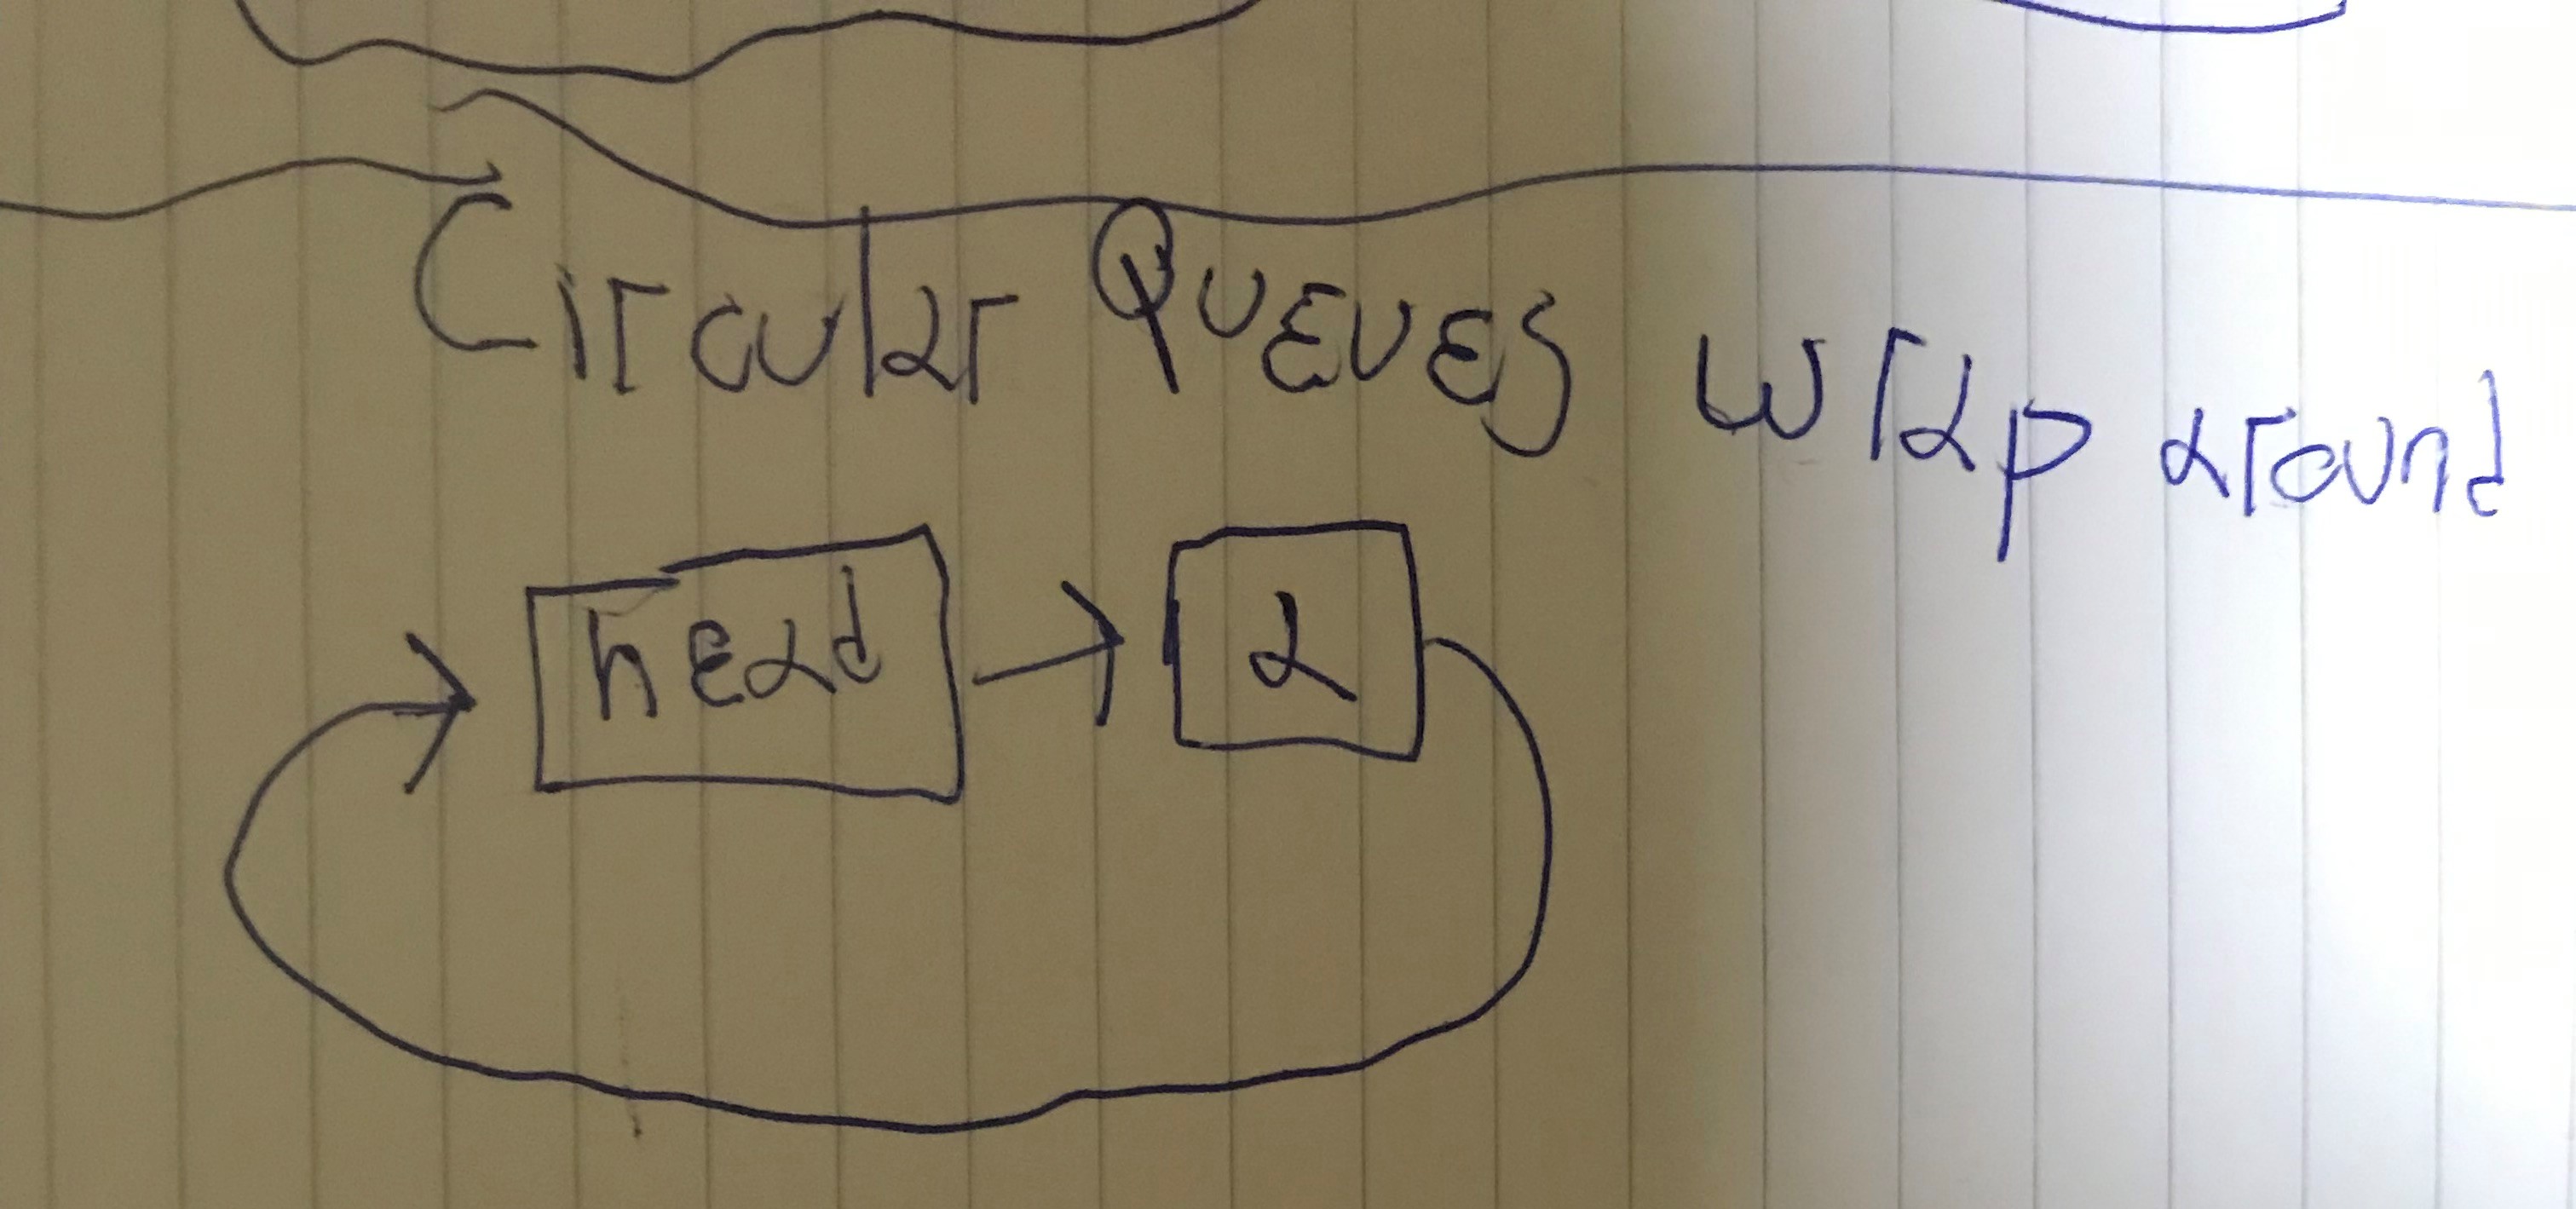 Circular Queues wrap around
head
a